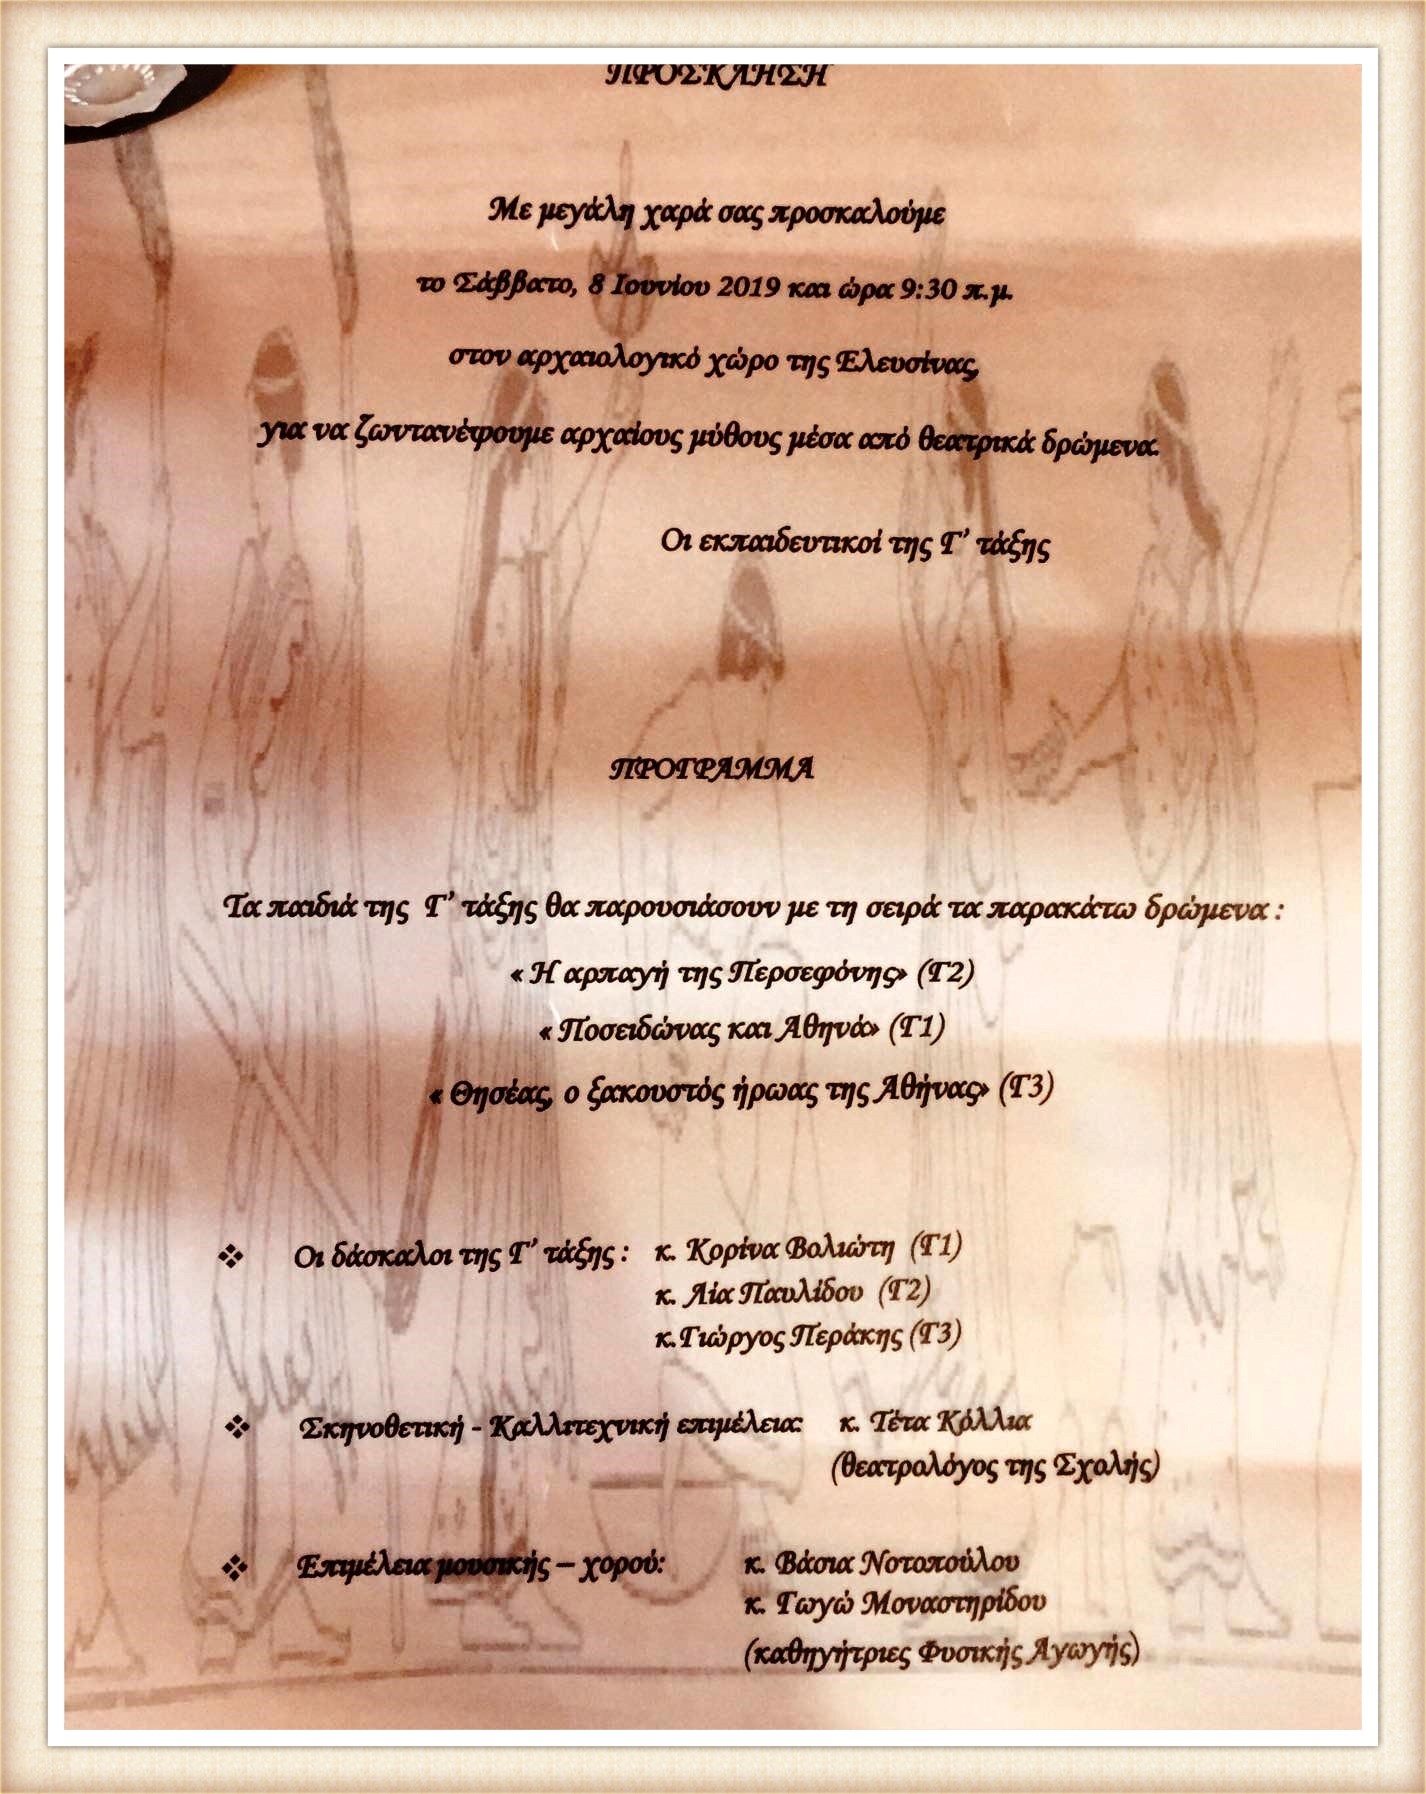 ΠΡΟΣΚΛΗΣΗ
Με μεγάλη χαρά σας προσκαλούμε
το Σάββατο, 8 Ιουνίου 2019 και ώρα 9:30 π.μ.
στον αρχαιολογικό χώρο της Ελευσίνας,
για να ζωντανέψουμε αρχαίους μύθους μέσα από θεατρικά δρώμενα.
Οι εκπαιδευτικοί της Γ’ τάξης
ΠΡΟΓΡΑΜΜΑ
Τα παιδιά της Γ’ τάξης θα παρουσιάσουν με τη σειρά τα παρακάτω δρώμενα :
« Η αρπαγή της Περσεφόνης» (Γ2)
« Ποσειδώνας και Αθηνά» (Γ1)
« Θησέας, ο ξακουστός ήρωας της Αθήνας» (Γ3)
❖ Οι δάσκαλοι της Γ’ τάξης : κ. Κορίνα Βολιώτη (Γ1)
κ. Λία Παυλίδου (Γ2)
κ.Γιώργος Περάκης (Γ3)
❖ Σκηνοθετική - Καλλιτεχνική επιμέλεια: κ. Τέτα Κόλλια
(θεατρολόγος της Σχολής)
❖ Επιμέλεια μουσικής – χορού: κ. Βάσια Νοτοπούλου
κ. Γωγώ Μοναστηρίδου
(καθηγήτριες Φυσικής Αγωγής)